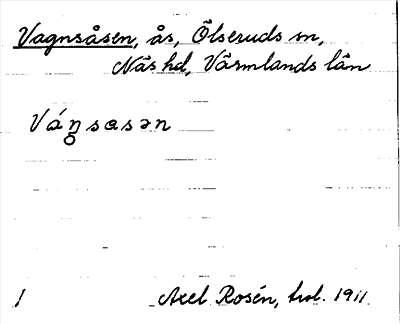 Vagnsåsen, ås, Ölseruds sn,
Näs hd, Värmlands län
Váŋsasən
1
Axel Rosén, trol. 1911